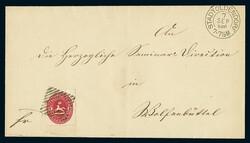 An
STADTOLDENDORF
7 SEP
7-7½M
die Herzogliche Seminar-Direction
in
Wolfenbüttel
fr.